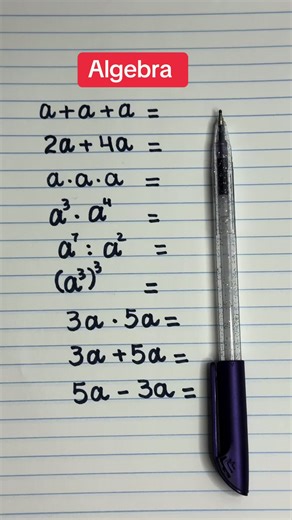 Algebra
a + a + a =
2a + 4a =
a · a · a =
a³ · a⁴ =
a⁷ : a² =
(a³)³ =
3a · 5a =
3a + 5a =
5a - 3a =